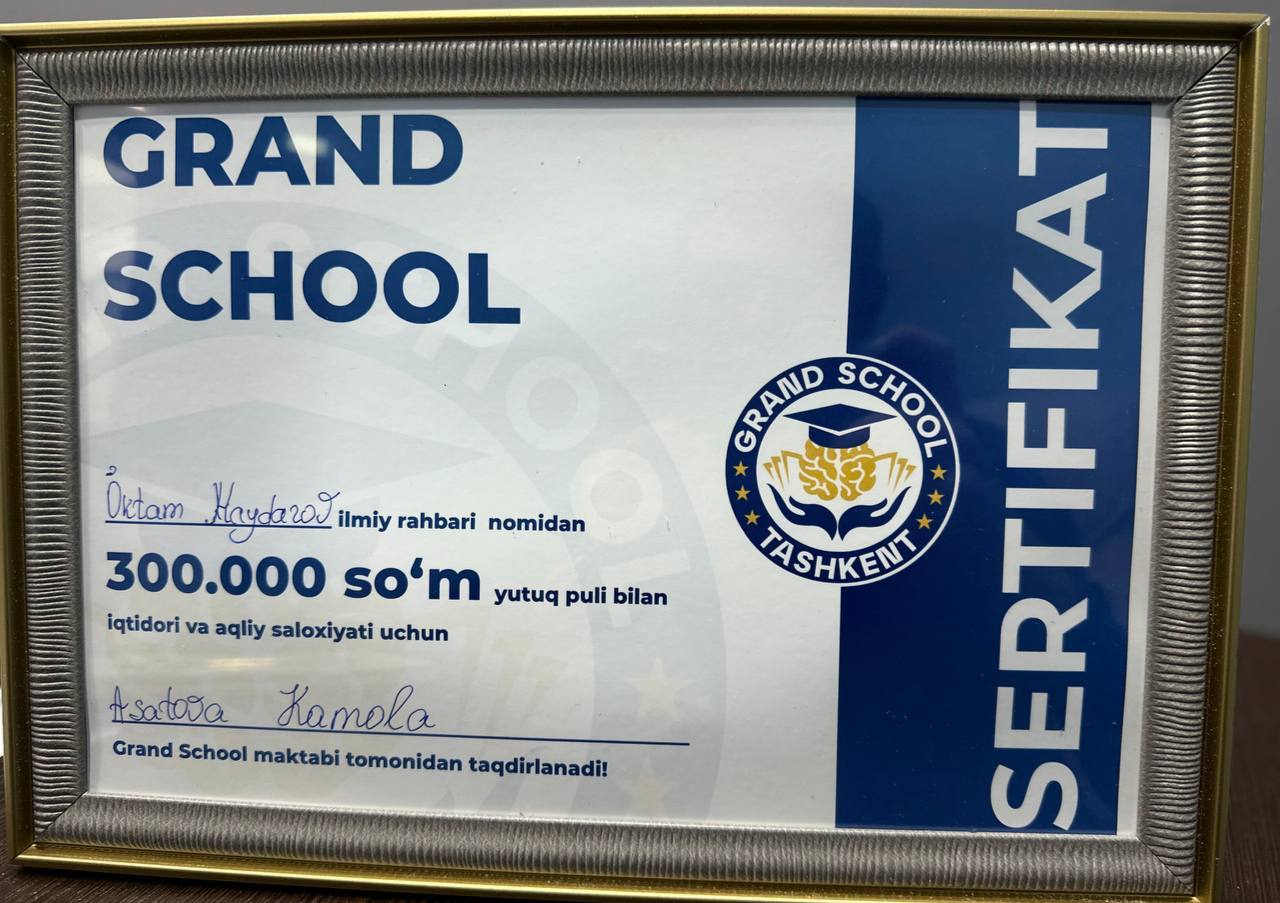 GRAND
SCHOOL
O'ktam Haydarov ilmiy rahbari nomidan
300.000 so‘m yutuq puli bilan
iqtidori va aqliy saloxiyati uchun
Asatova Kamola
Grand School maktabi tomonidan taqdirlanadi!
GRAND SCHOOL
TASHKENT
SERTIFIKAT